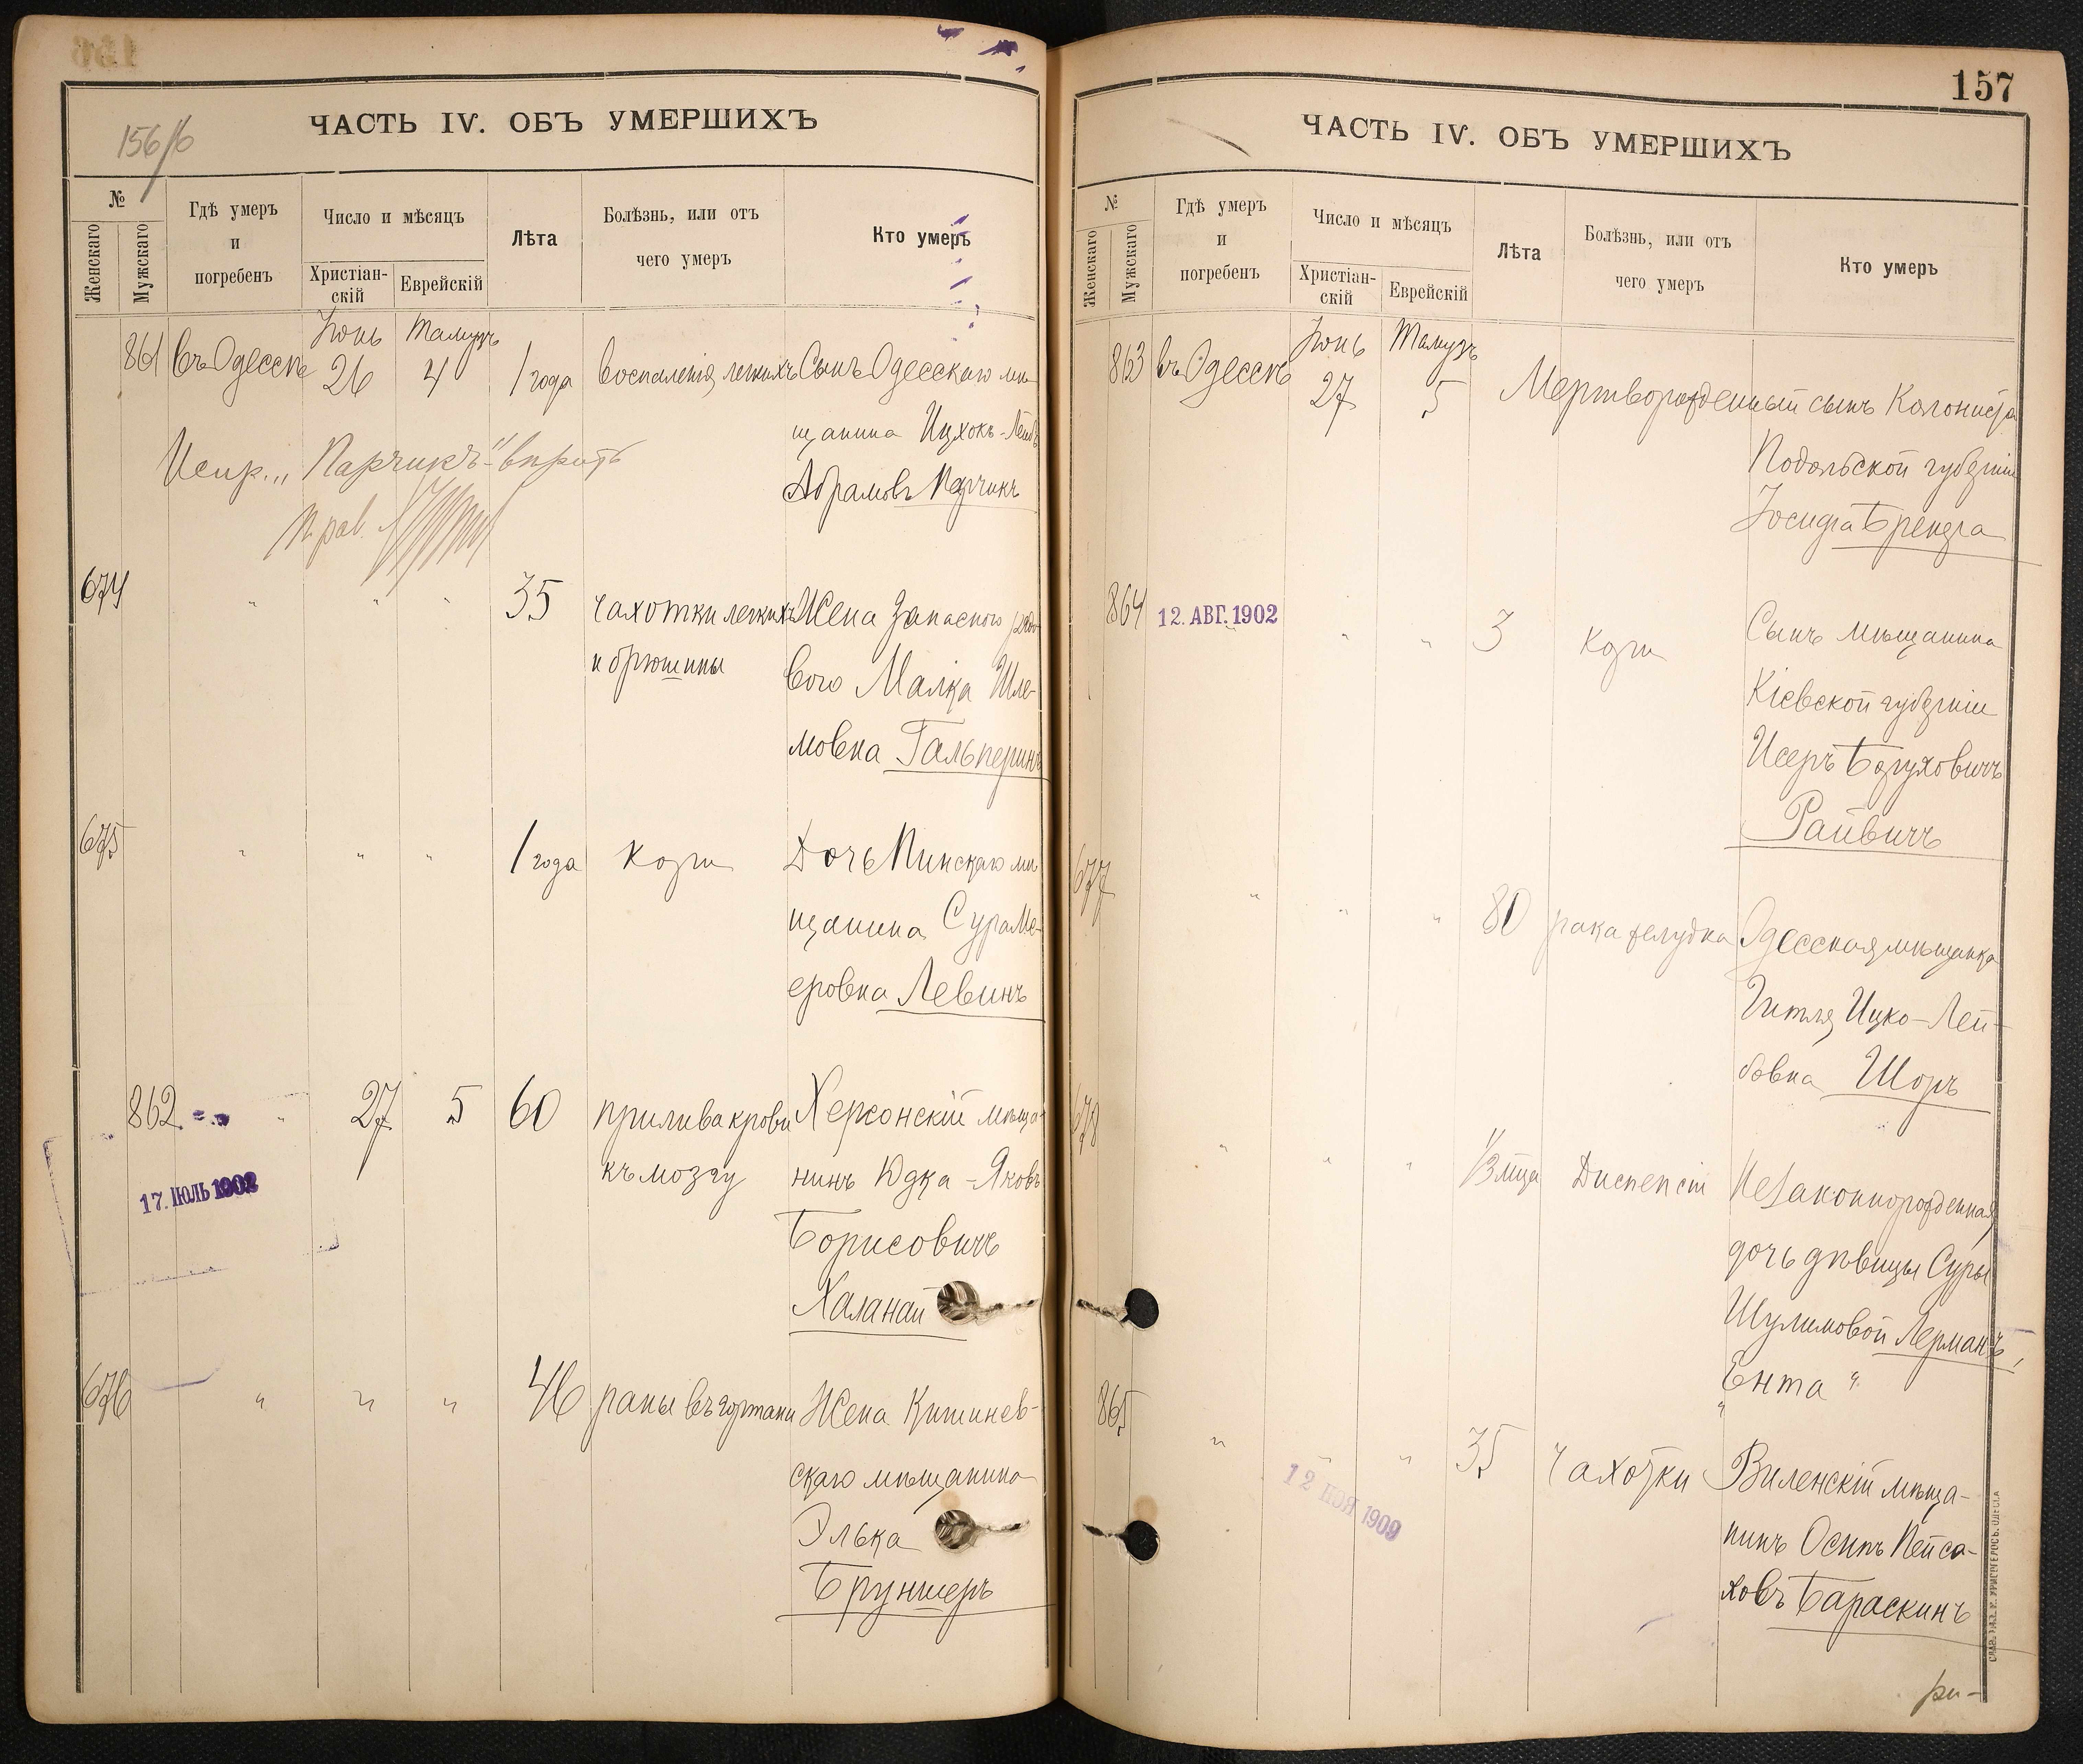 156/б
ЧАСТЬ IV. ОБЪ УМЕРШИХЪ
№
Женскаго
Мужскаго
Гдѣ умеръ
и
погребенъ
Число и мѣсяцъ
Христіан-
скій
Еврейскій
Лѣта
Болѣзнь, или отъ
чего умеръ
Кто умеръ
861 въ Одессѣ Іюнь 26 Тамузъ 4 1 года воспаленія легкихъ Сынъ Одесскаго мѣ-
щанина Ицхокъ-Лейбъ
Абрамовъ Парчикъ
Испр. „Парчикъ" вѣрить
674 " " " 35 чахотки легкихъ Жена Запасного рядо-
и брюшины вого Малка Шле-
мовна Гальперинъ
675 " " " 1 года кори Дочь Пинскаго мѣ-
щанина Сура Ме-
еровна Левинъ
862 " 27 5 60 прилива крови Херсонскій мѣща-
къ мозгу нинъ Юдка-Яковъ
17. ІЮЛЬ 1902
Борисовичъ
Халанай
676 " " " 46 раны въ гортани Жена Кишинев-
скаго мѣщанина
Элька
Бруншеръ
157
ЧАСТЬ IV. ОБЪ УМЕРШИХЪ
№
Женскаго
Мужскаго
Гдѣ умеръ
и
погребенъ
Число и мѣсяцъ
Христіан-
скій
Еврейскій
Лѣта
Болѣзнь, или отъ
чего умеръ
Кто умеръ
863 въ Одессѣ Іюнь 27 Тамузъ 5 Мертворожденный сынъ Колониста
Подольской губерніи
Іосифа Бренера
864 12. АВГ. 1902 " " " 3 кори Сынъ мѣщанина
Кіевской губерніи
Исеръ Боруховичъ
Райвичъ
677 " " " 80 рака желудка Одесская мѣщанка
Гитля Ицко-Лей-
бовна Шоръ
678 " " " 1/3 мѣца Диспепсіи Незаконнорожденная
дочь дѣвицы Суры
Шулимовой Лерманъ,
„Ента"
865 " " " 35 чахотки Виленскій мѣща-
12 НОЯ 1909
нинъ Осипъ Пейса-
ховъ Бараскинъ